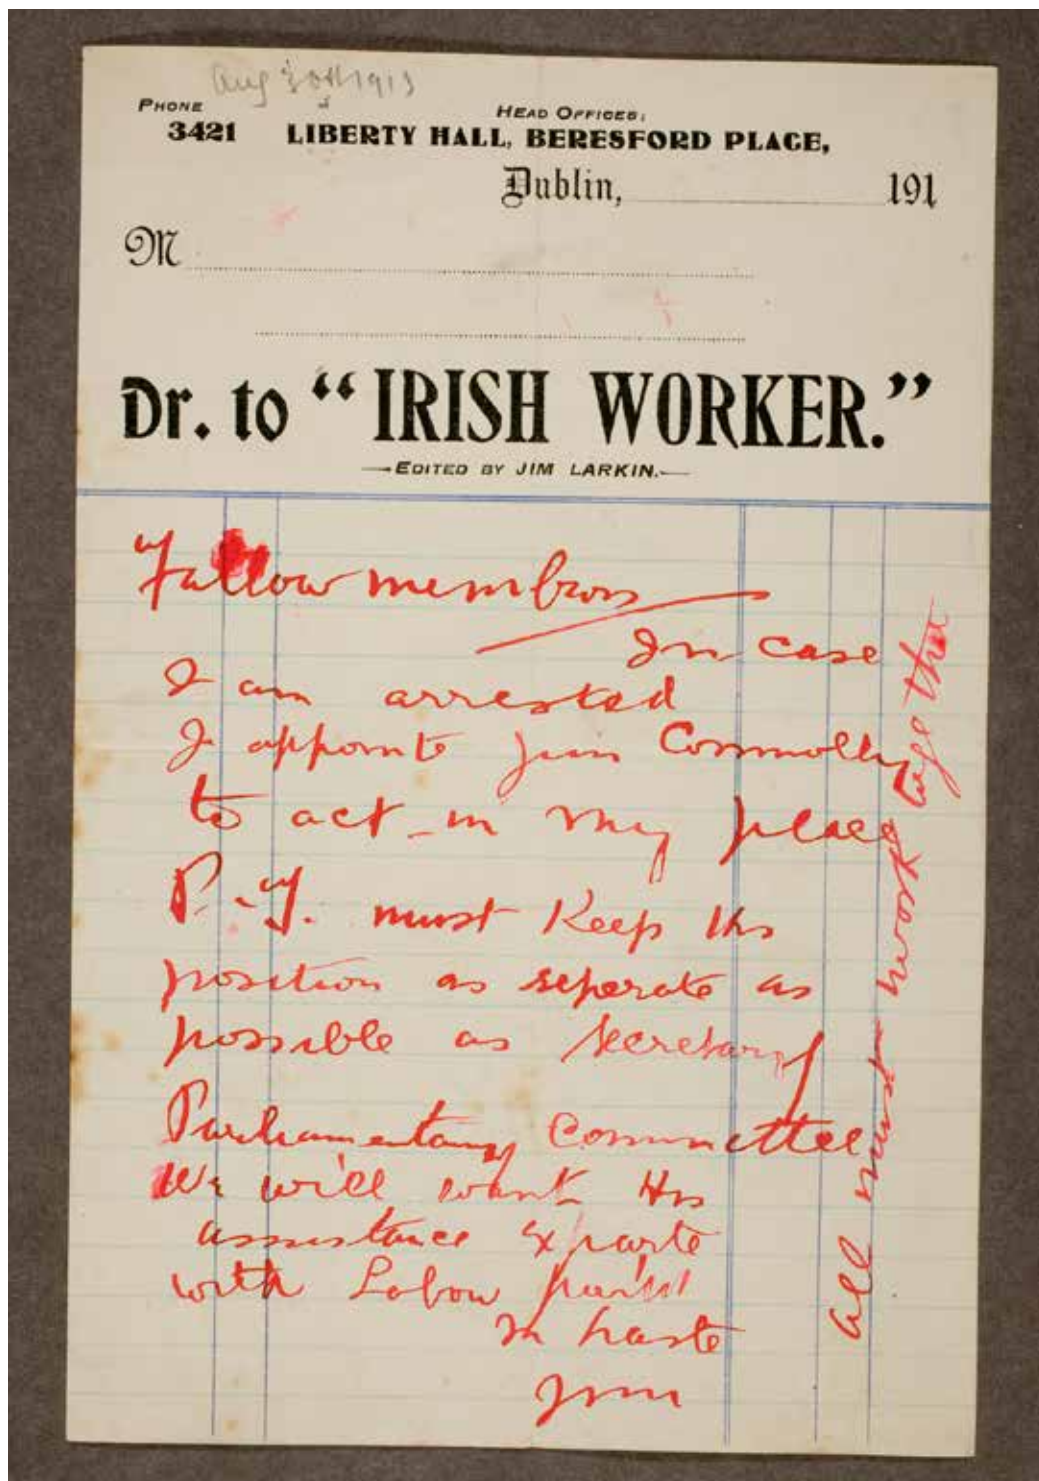 Aug 30th 1913
PHONE
3421
HEAD OFFICES:
LIBERTY HALL, BERESFORD PLACE,
Dublin, 191
M
Dr. to “IRISH WORKER.”
EDITED BY JIM LARKIN.
Fellow members
In case
I am arrested
I appoint Jim Connolly
to act in my place
P.T. must Keep his
position as seperate as
possible as secretary
Parliamentary Committee
We will want His
assistance exparte
with Labour party
In haste
Jim
All must work